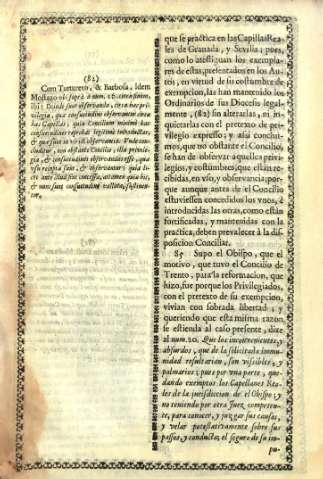 (82)
Cum Tuttureto, & Barbosa, Idem
Mostazo ubi suprà à num.
ibi: Unde sunt observando, circa hæc privilegia,
que consuetudinem observatam circa
has Capillas: quia Concilium minimè has
consuetudines reprobat legitimè introductas,
& quæ sunt in viridi observantia. Unde concluditur,
non obstante Concilio, illa privilegia,
& consuetudines observandas esse, quæ
usu recepta sunt, & observantur: quia licet
ante illud sint concessa, attamen quia
& consuetudine
que se practìca en las Capillas Reales
de Granada, y Sevilla; pues,
como lo atestiguan los exemplares
de estas, presentados en los Autos,
en virtud de su costumbre de
exempcion, las han mantenido los
Ordinarios de sus Diocesis legalmente,
(82) sin alterarlas, ni inquietarlas
con el pretexto de privilegio
expresso; y assi concluimos,
que no obstante el Concilio,
se han de observar aquellos privilegios,
y costumbres, que estàn recibidas,
en uso, y observancia; porque
aunque antes de el Concilio
estuviessen concedidos los unos, è
introducidas las otras, como estàn
fortificadas, y mantenidas con la
practica, deben prevalecer à la disposicion
Conciliar.
87 Supo el Obispo, que el
motivo, que tuvo el Concilio de
Trento, para la reformacion, que
hizo, fue porque los Privilegiados,
con el pretexto de su exempcion,
vivian con sobrada libertad; y
queriendo que esta misma razon
se estienda al caso presente, dice
al num. 20. Que los inconvenientes, y
absurdos, que de la solicitada inmunidad
resultarian, son visibles, y
palmarios; pues por una parte, quedando
exemptos los Capellanes Reales
de la jurisdiccion de el Obispo; y
no teniendo por otra Juez competente,
para conocer, y juzgar sus causas,
y velar potestativamente sobre sus
passos, y conducta; el seguro de su impu-